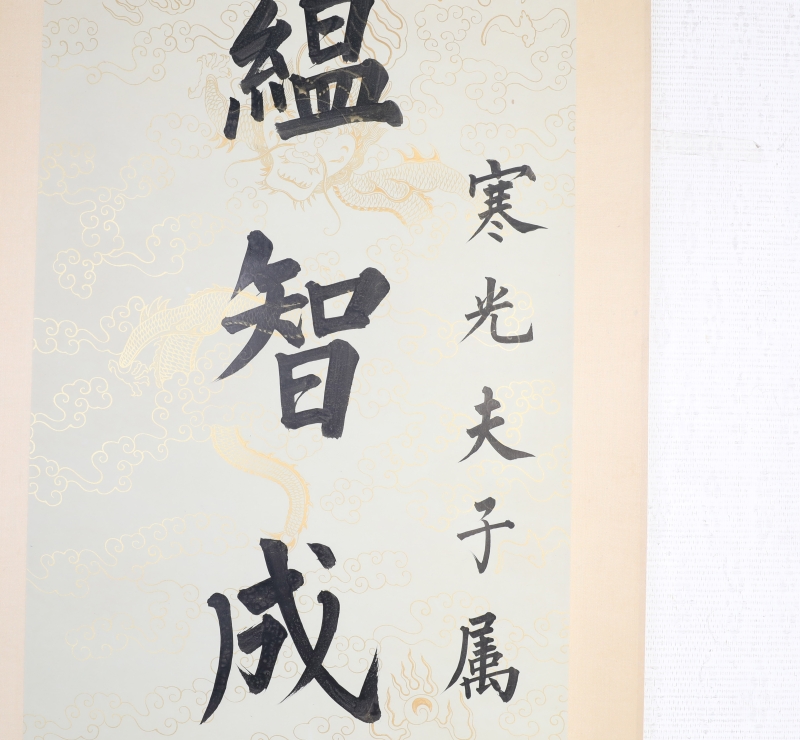 寒光夫子属
縕智成